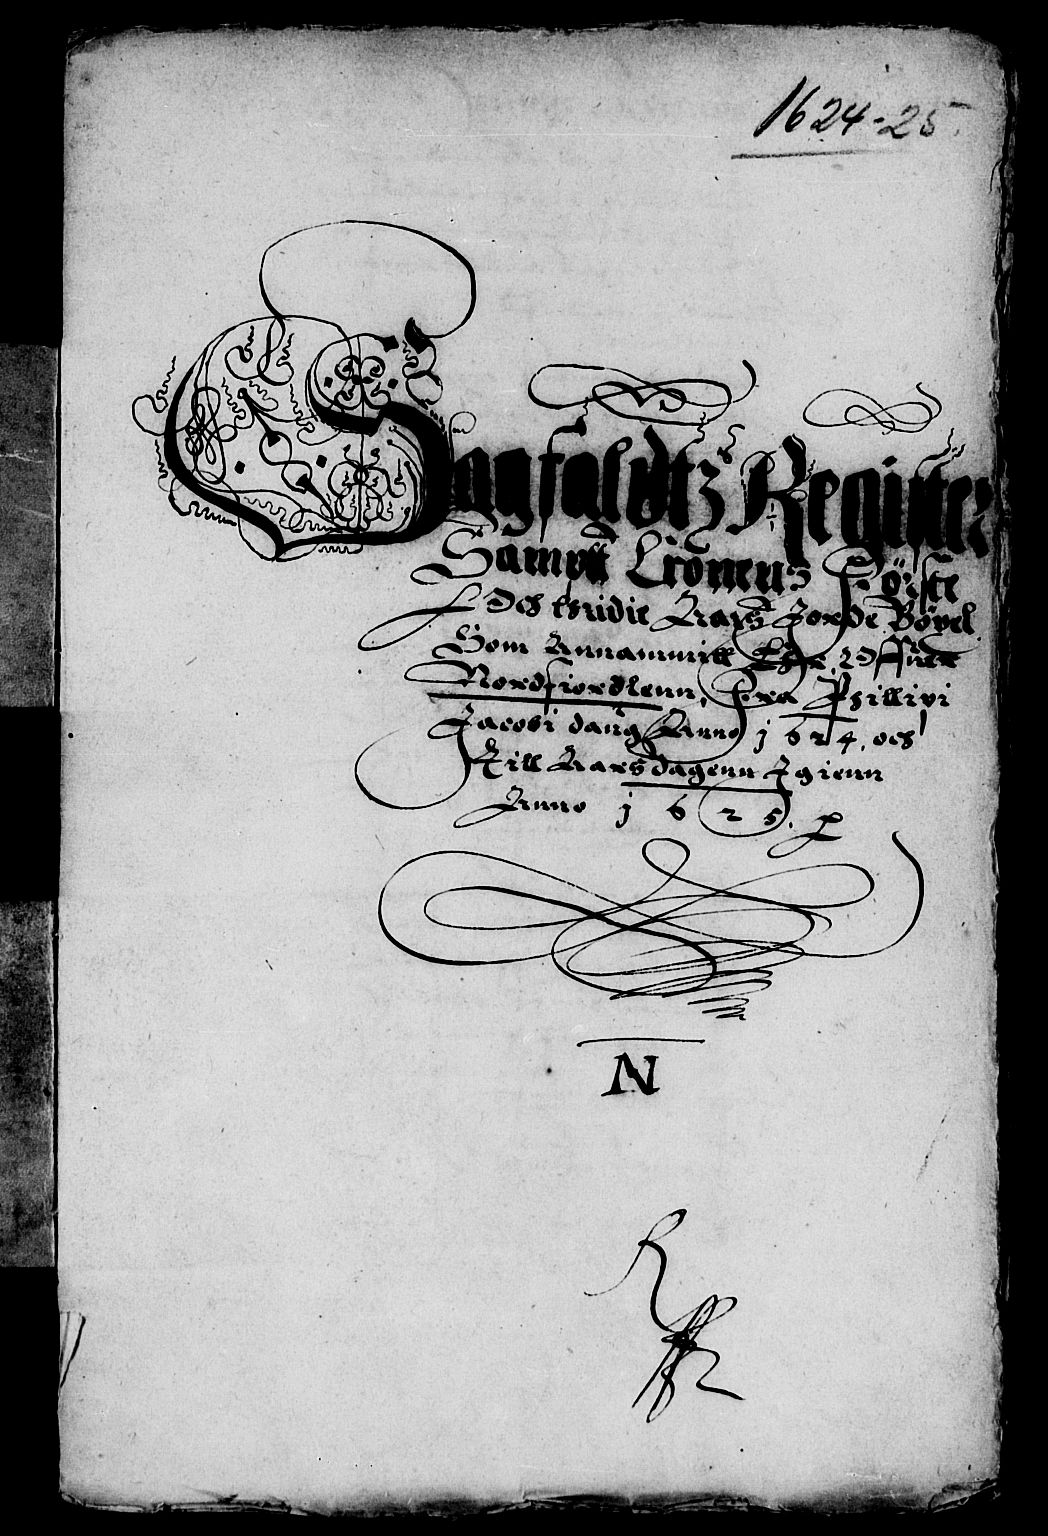 1624-25.
Sagfaldtz Register
Sampt Cronens Første
Och thridie Aars Jorde Bøxel
Som Annammitt Ehr, Aff
Nordfiordlenn, Fra Phillipi
Jacobi daug Anno 1624, och
Till Aarsdagenn Igienn
Anno 1625.
N